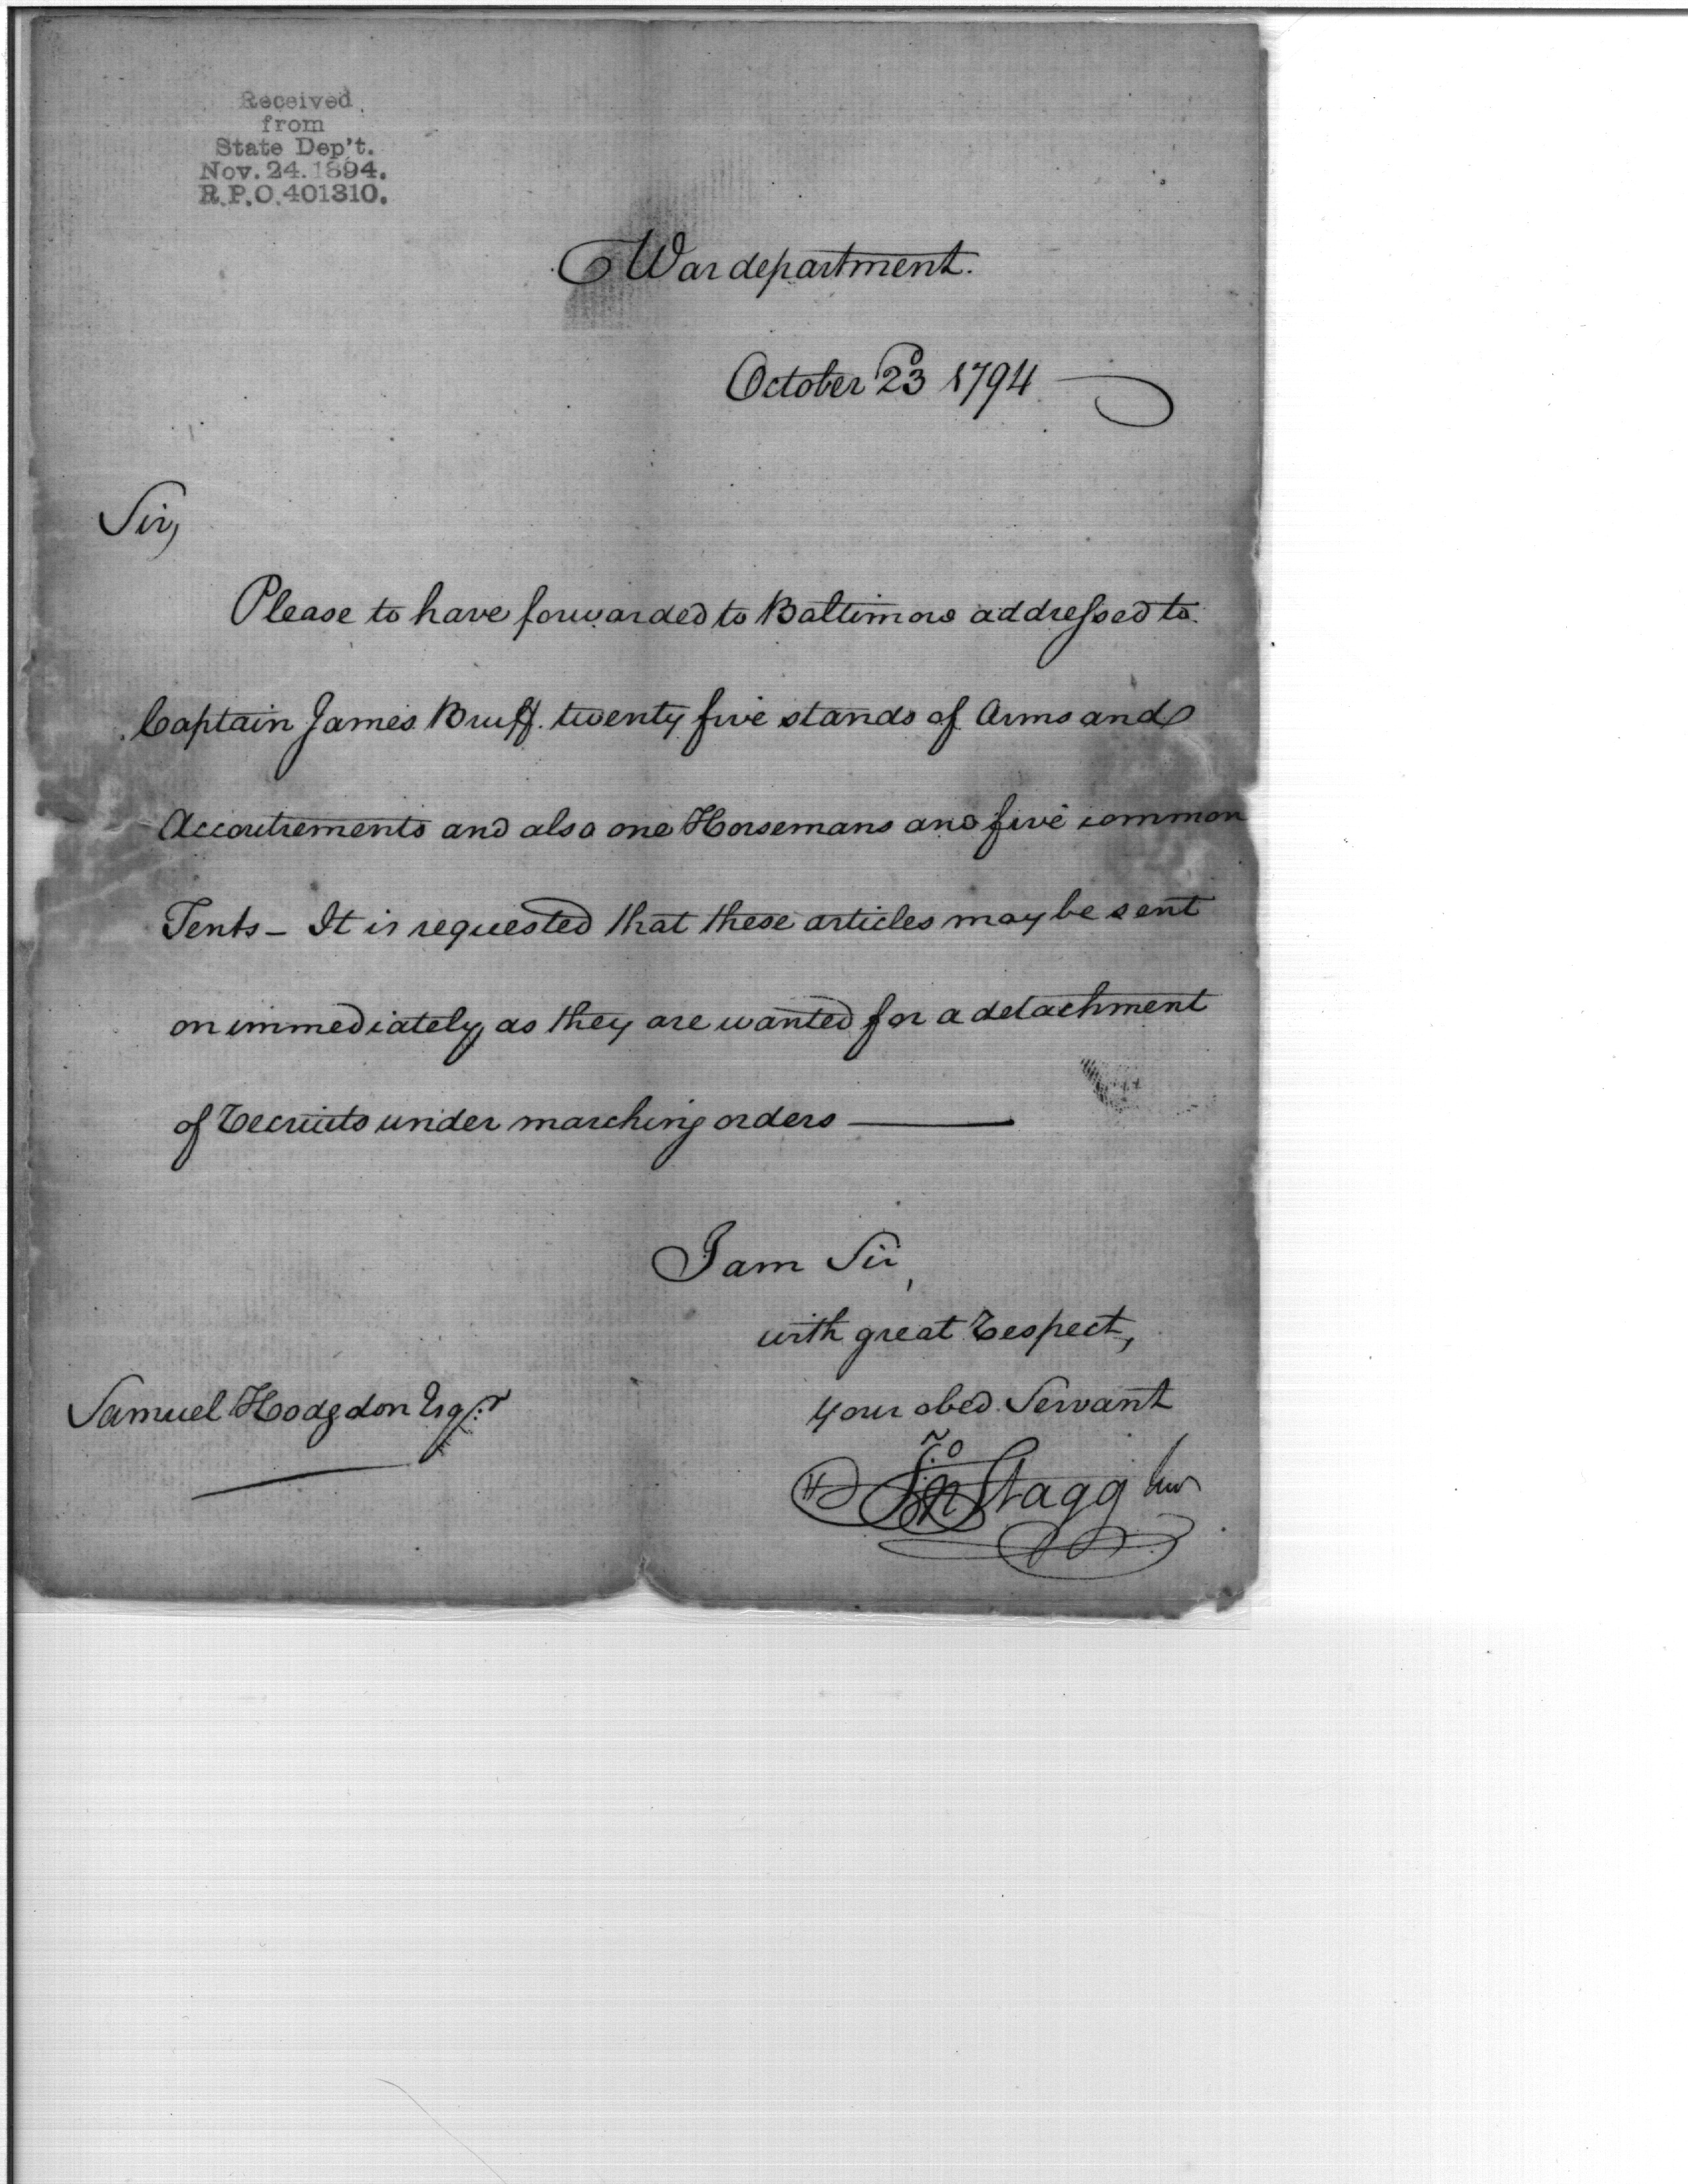 Received
from
State Dep't.
Nov. 24. 1894.
R.P.O. 401310.
War department.
October 23d 1794
Sir,
Please to have forwarded to Baltimore addressed to
Captain James Bruff. twenty five stands of Arms and
Accoutrements and also one Horsemans and five common
Tents - It is requested that these articles may be sent
on immediately, as they are wanted for a detachment
of Recruits under marching orders —
I am Sir,
with great Respect,
your obed. Servant
Jno Stagg Junr
Samuel Hodgdon Esqr.